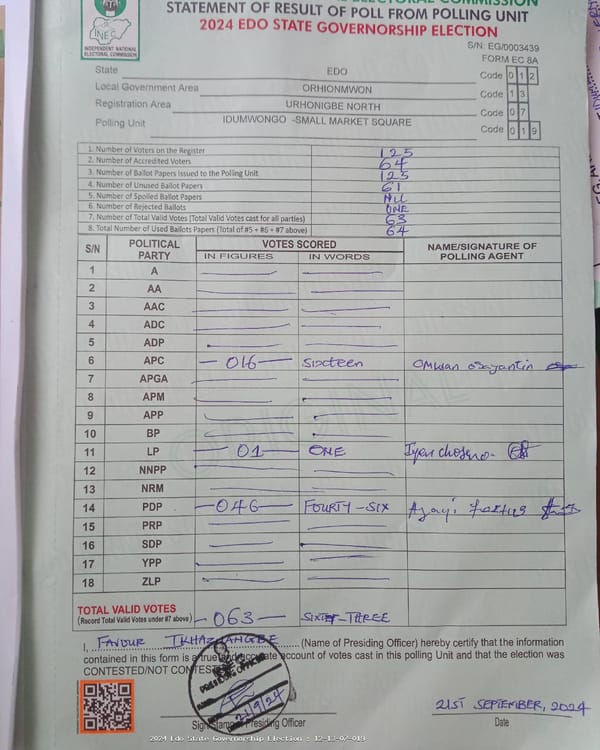 STATEMENT OF RESULT OF POLL FROM POLLING UNIT
2024 EDO STATE GOVERNORSHIP ELECTION
INEC
INDEPENDENT NATIONAL ELECTORAL COMMISSION
S/N: EG/0003439
FORM EC 8A
State EDO Code 0 1 2
Local Government Area ORHIONMWON Code 1 3
Registration Area URHONIGBE NORTH Code 0 7
Polling Unit IDUMWONGO -SMALL MARKET SQUARE Code 0 1 9
1. Number of Voters on the Register 125
2. Number of Accredited Voters 64
3. Number of Ballot Papers Issued to the Polling Unit 125
4. Number of Unused Ballot Papers 61
5. Number of Spoiled Ballot Papers NIL
6. Number of Rejected Ballots ONE
7. Number of Total Valid Votes [Total Valid Votes cast for all parties) 63
8. Total Number of Used Ballots Papers (Total of #5 + #6 + #7 above) 64
S/N POLITICAL PARTY VOTES SCORED NAME/SIGNATURE OF POLLING AGENT
IN FIGURES IN WORDS
1 A
2 AA
3 AAC
4 ADC
5 ADP
6 APC - 016 - Sixteen Omwan osayantin
7 APGA
8 APM
9 APP
10 BP
11 LP - 01 - ONE
12 NNPP
13 NRM
14 PDP - 046 - FOURTY-SIX Ajayi
15 PRP
16 SDP
17 YPP
18 ZLP
TOTAL VALID VOTES - 063 - SIXTY-THREE
(Record Total Valid Votes under #7 above)
I, FAVOUR (Name of Presiding Officer) hereby certify that the information
contained in this form is a true and accurate account of votes cast in this polling Unit and that the election was
CONTESTED/NOT CONTESTED
PRESIDING OFFICER
21/9/24
Sign Stamp of Presiding Officer
21ST SEPTEMBER, 2024
Date
2024 Edo State Governorship Election : 12-13-07-019